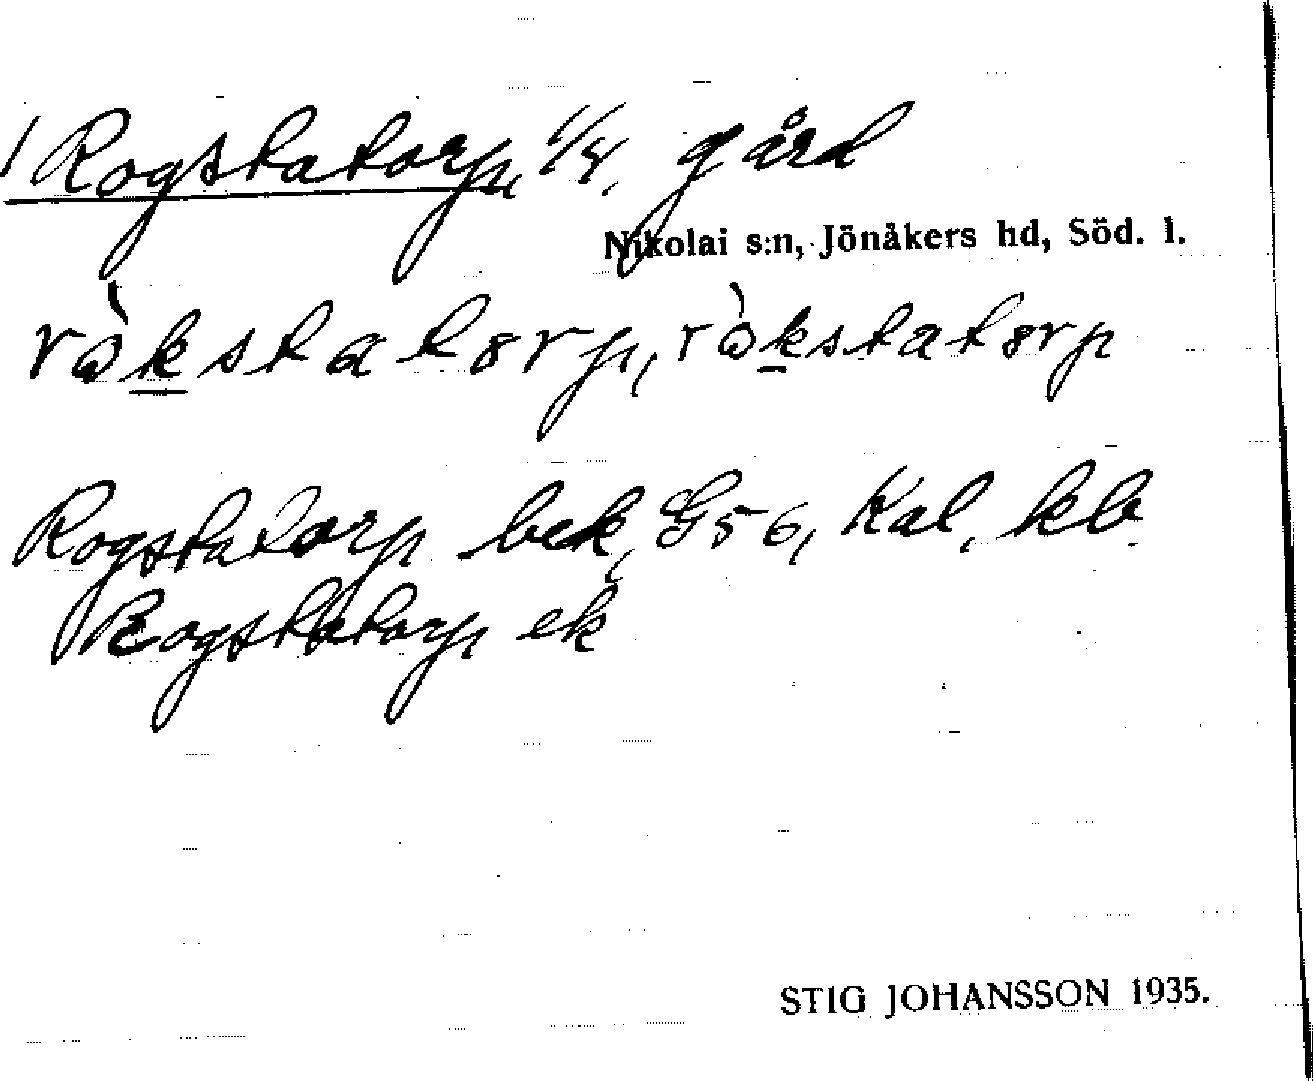 Rogstatorp, 1/4, gård
Nikolai s:n, Jönåkers hd, Söd. l.
ròkstatorp, ròkstatorp
Rogstatorp bek, G56, Kal, kb
Rogstatorp ek
STIG JOHANSSON 1935.